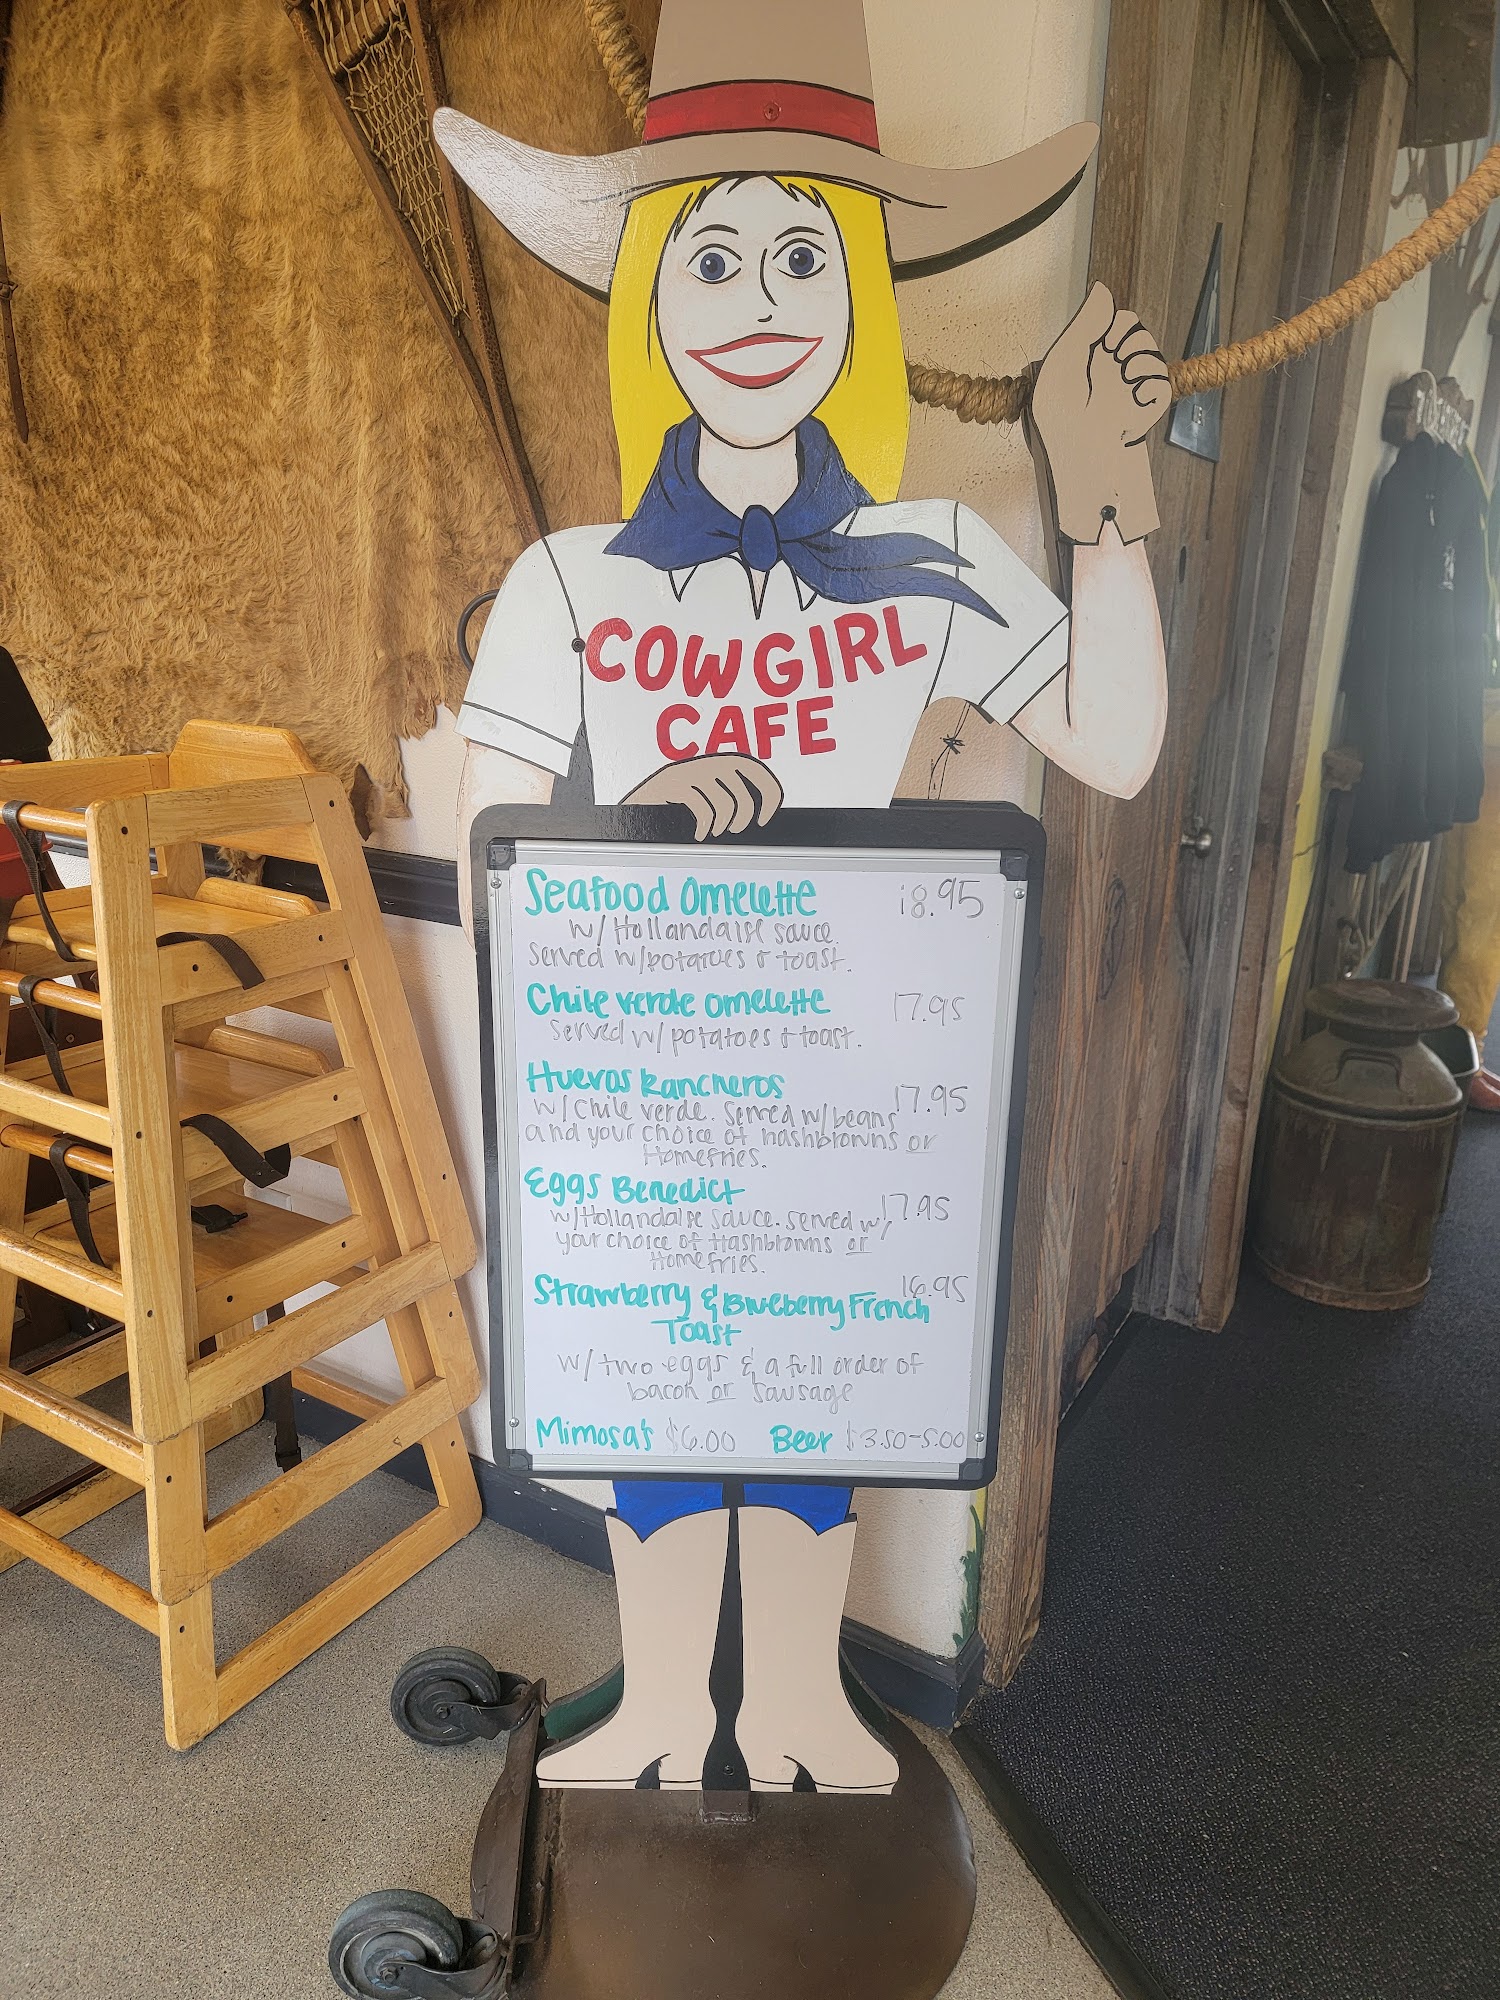 COWGIRL
CAFE
Seafood Omelette 18.95
w/ Hollandaise sauce.
Served w/potatoes & toast.
Chile verde omelette 17.95
Served w/ potatoes & toast.
Huevos Rancheros 17.95
w/ Chile verde. Served w/beans
and your choice of hashbrowns or
Homefries.
Eggs Benedict 17.95
w/Hollandaise sauce. served w/
your choice of Hashbrowns or
Homefries.
Strawberry & Blueberry French 16.95
Toast
w/ two eggs & a full order of
bacon or sausage
Mimosa's $6.00 Beer $3.50-5.00